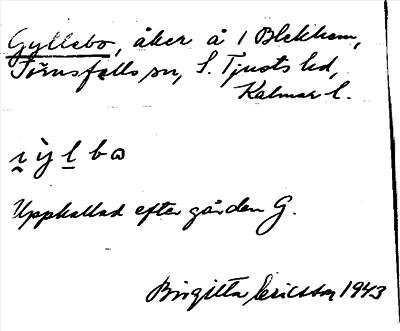 Gyllebo, åker å 1 Blekhem,
Törnsfalls sn, S. Tjusts hd,
Kalmar l.
Uppkallad efter gården G.
Birgitta Ericsson 1943